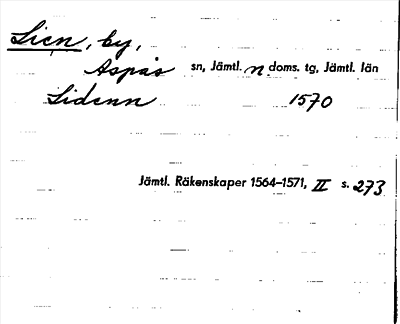 Lien, by,
Aspås sn, Jämtl. n doms. tg, Jämtl. län
Lidenn 1570
Jämtl. Räkenskaper 1564–1571, II s. 273